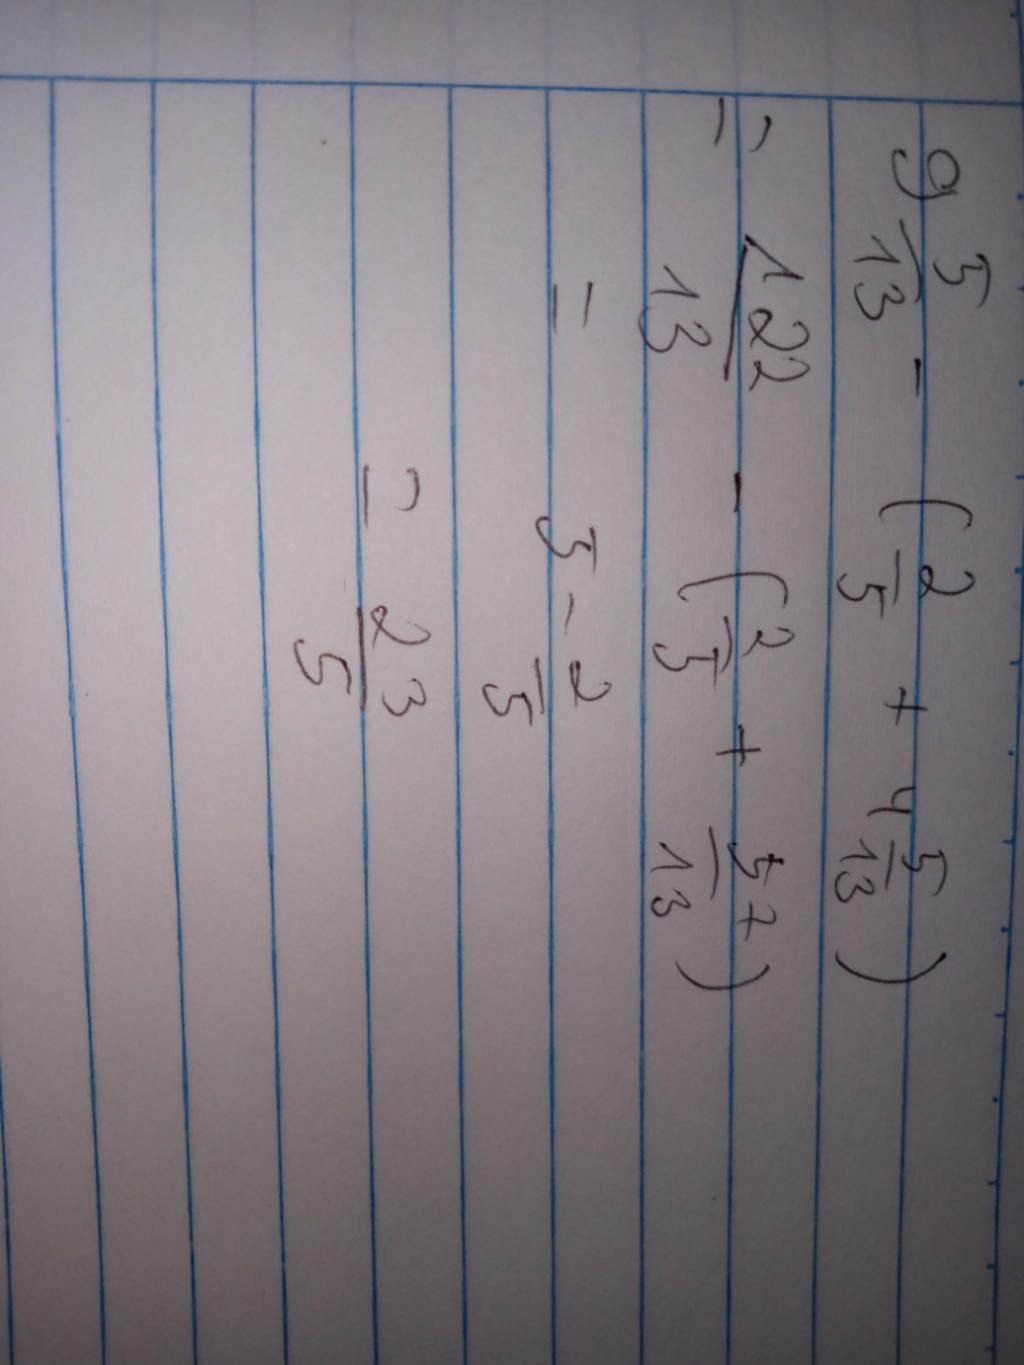 9 5/13 - (2/5 + 4 5/13)
= 122/13 - (2/5 + 57/13)
= 5 - 2/5
= 23/5